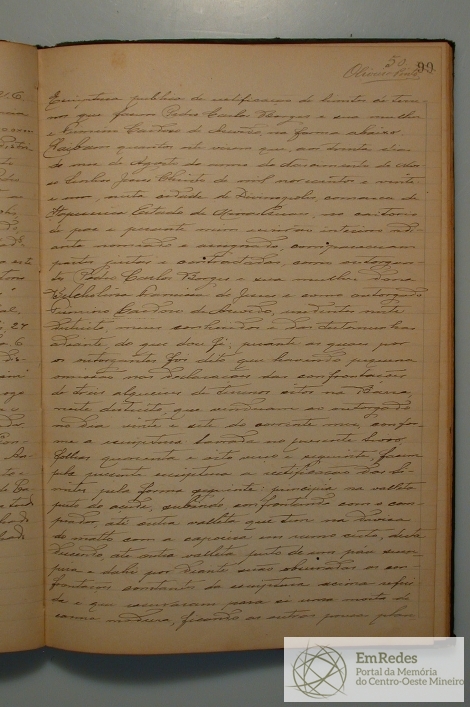 50 99
Escriptura publica de ratificacam de limites de terre-
nos que fazem Pedro Carlos Borges e sua mulher
e Cardoso de Azevedo, na forma abaixo.
Saibam quantos este virem que, aos trinta dias
do mez de Agosto do anno do Nascimento de Nos-
so Senhor Jesus Christo de mil novecentos e vinte
e um, nesta cidade de Divinopolis, comarca de
Itapecerica Estado de Minas Geraes, no cartorio
de paz e perante mim escrivão interino
ante nomeado e assignado, compareceram
partes justas e contractadas, como outorgan-
tes Pedro Carlos Borges e sua mulher Dona
de Jesus e como outorgado
Cardoso de Azevedo, residentes neste
districto, meus conhecidos e das testemunhas
adiante, do que dou fé; perante as quaes por
os outorgantes foi dito que havendo pequena
omissão nas declarações das confrontações
de tres alqueires de terrenos sitos na
neste districto, que venderam ao outorgado
no dia vinte e sete do corrente mez, confor-
me a escriptura lavrada no presente livro
folhas quarenta e oito verso e seguinte, fazem
pela presente escriptura a ratificacam dos li-
mites pela forma seguinte: principia na valleta
perto do açude, subindo confrontando com o com-
prador, até outra valleta que tem na divisa
do matto com a capoeira em rumo certo, desta
direito, até outra valleta perto de um páu
e dahi por diante serão observadas as con-
frontações constantes da escriptura acima referi-
da e que reservaram para si uma moita de
madeira, ficando as outras para
EmRedes
Portal da Memória
do Centro-Oeste Mineiro